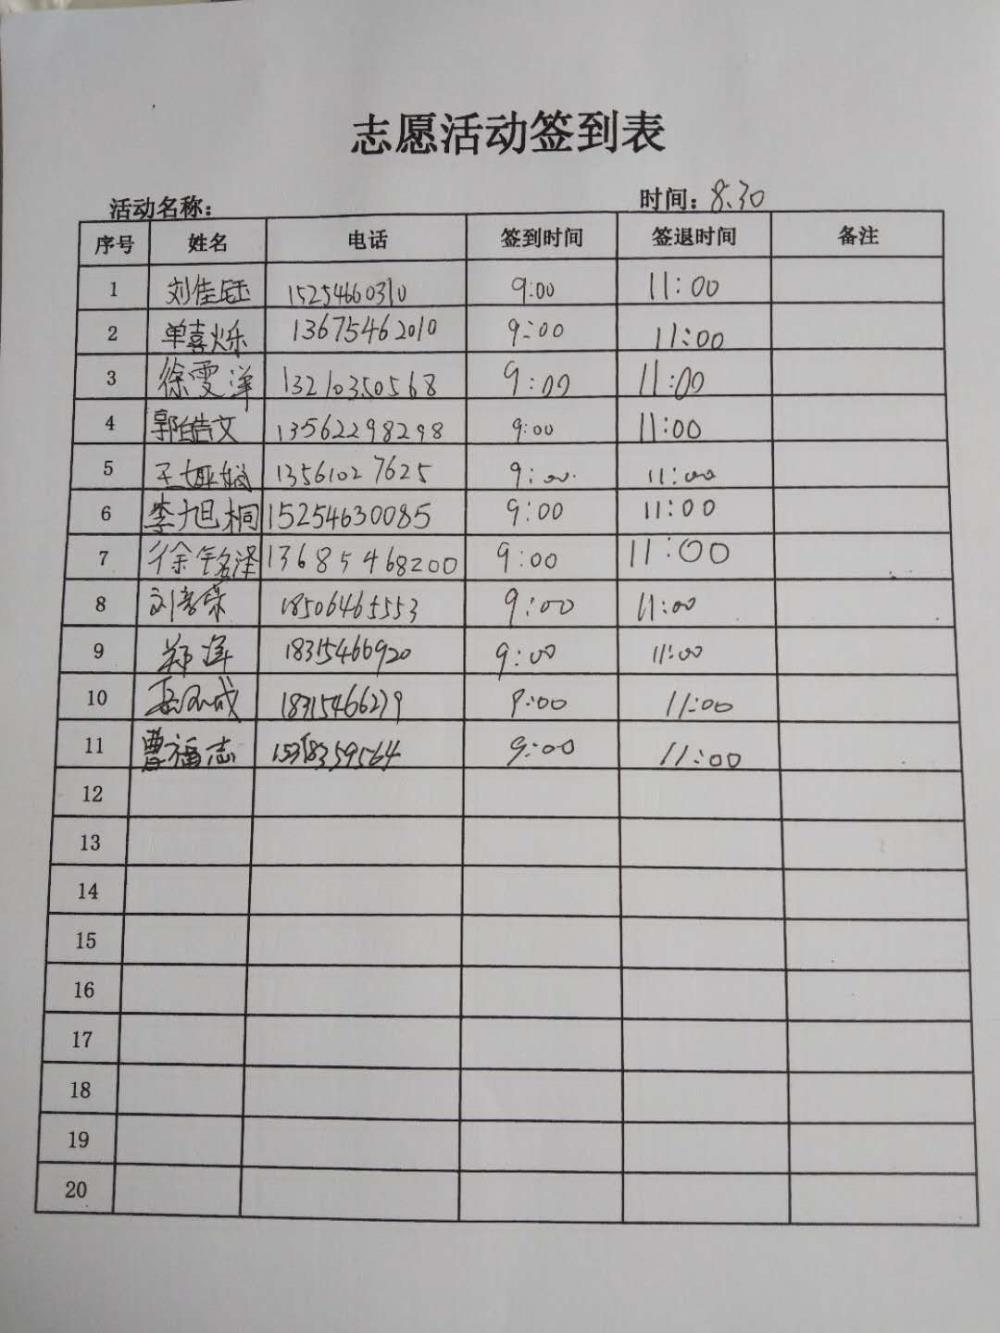 志愿活动签到表
活动名称： 时间：8.30
序号 姓名 电话 签到时间 签退时间 备注
1 刘佳钰 15254660310 9:00 11:00
2 单喜烁 13675462010 9:00 11:00
3 徐雯洋 13210350568 9:00 11:00
4 郭皓文 13562298298 9:00 11:00
5 13561027625 9:00 11:00
6 李旭桐 15254630085 9:00 11:00
7 徐铭泽 13685468200 9:00 11:00
8 18506465553 9:00 11:00
9 18315466920 9:00 11:00
10 18315466279 9:00 11:00
11 曹福志 9:00 11:00
12
13
14
15
16
17
18
19
20